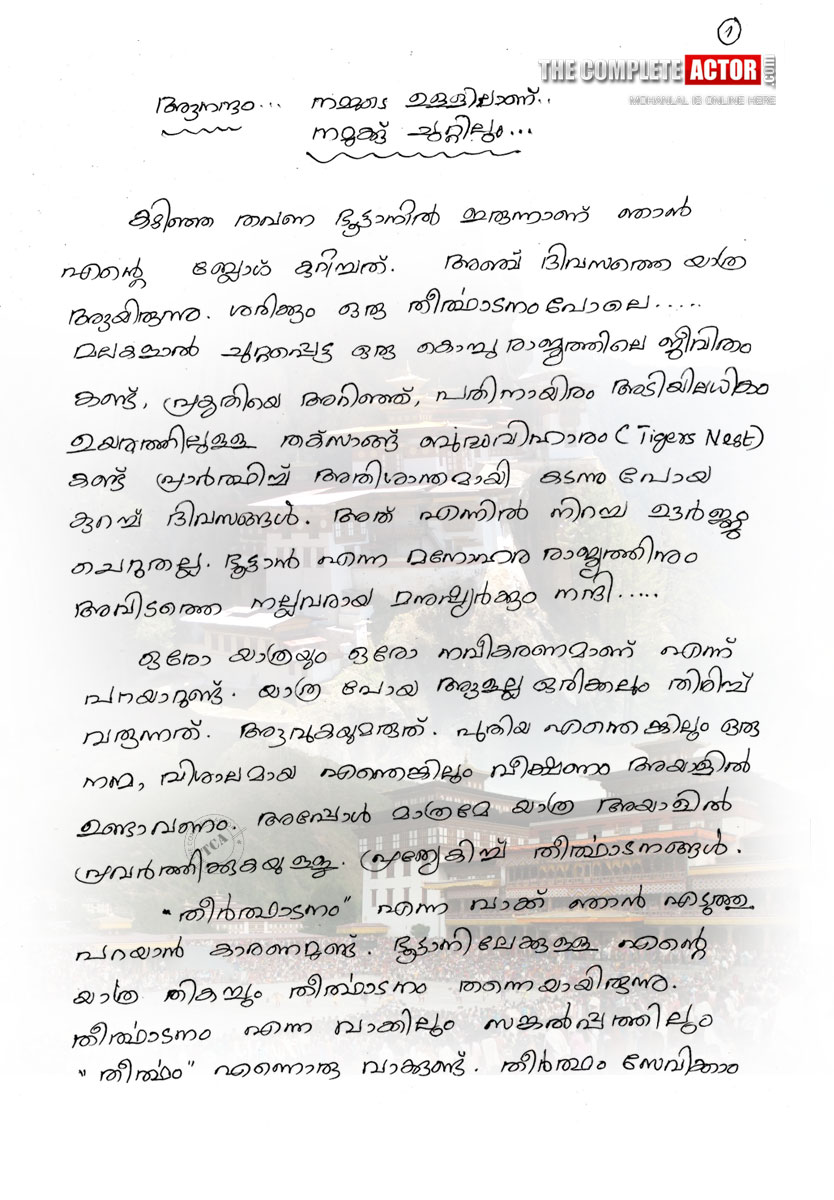 1
THE COMPLETE ACTOR.com
MOHANLAL IS ONLINE HERE
ആനന്ദം... നമ്മുടെ ഉള്ളിലാണ്..
നമുക്ക് ചുറ്റിലും...
കഴിഞ്ഞ തവണ ഭൂട്ടാനിൽ ഇരുന്നാണ് ഞാൻ
എന്റെ ബ്ലോഗ് കുറിച്ചത്. അഞ്ച് ദിവസത്തെ യാത്ര
ആയിരുന്നു. ശരിക്കും ഒരു തീർത്ഥാടനം പോലെ.....
മലകളാൽ ചുറ്റപ്പെട്ട ഒരു കൊച്ചു രാജ്യത്തിലെ ജീവിതം
കണ്ട്, പ്രകൃതിയെ അറിഞ്ഞ്, പതിനായിരം അടിയിലധികം
ഉയരത്തിലുള്ള തക്സാങ്ങ് ബുദ്ധവിഹാരം (Tigers Nest)
കണ്ട് പ്രാർത്ഥിച്ച് അതിശാന്തമായി കടന്നു പോയ
കുറച്ച് ദിവസങ്ങൾ. അത് എന്നിൽ നിറച്ച ഊർജ്ജം
ചെറുതല്ല. ഭൂട്ടാൻ എന്ന മനോഹര രാജ്യത്തിനും
അവിടത്തെ നല്ലവരായ മനുഷ്യർക്കും നന്ദി.....
ഒരോ യാത്രയും ഒരോ നവീകരണമാണ് എന്ന്
പറയാറുണ്ട്. യാത്ര പോയ ആളല്ല ഒരിക്കലും തിരിച്ച്
വരുന്നത്. ആവുകയുമരുത്. പുതിയ എന്തെങ്കിലും ഒരു
നന്മ, വിശാലമായ എന്തെങ്കിലും വീക്ഷണം അയാളിൽ
ഉണ്ടാവണം. അപ്പോൾ മാത്രമേ യാത്ര അയാളിൽ
പ്രവർത്തിക്കുകയുള്ളൂ. പ്രത്യേകിച്ച് തീർത്ഥാടനങ്ങൾ.
"തീർത്ഥാടനം" എന്ന വാക്ക് ഞാൻ എടുത്തു
പറയാൻ കാരണമുണ്ട്. ഭൂട്ടാനിലേക്കുള്ള എന്റെ
യാത്ര തികച്ചും തീർത്ഥാടനം തന്നെയായിരുന്നു.
തീർത്ഥാടനം എന്ന വാക്കിലും സങ്കൽപ്പത്തിലും
"തീർത്ഥം" എന്നൊരു വാക്കുണ്ട്. തീർത്ഥം സേവിക്കാം
TCA